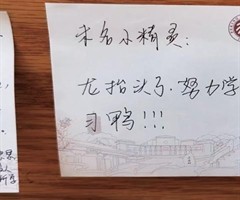 未名小精灵:
龙抬头了.努力学
习鸭!!!